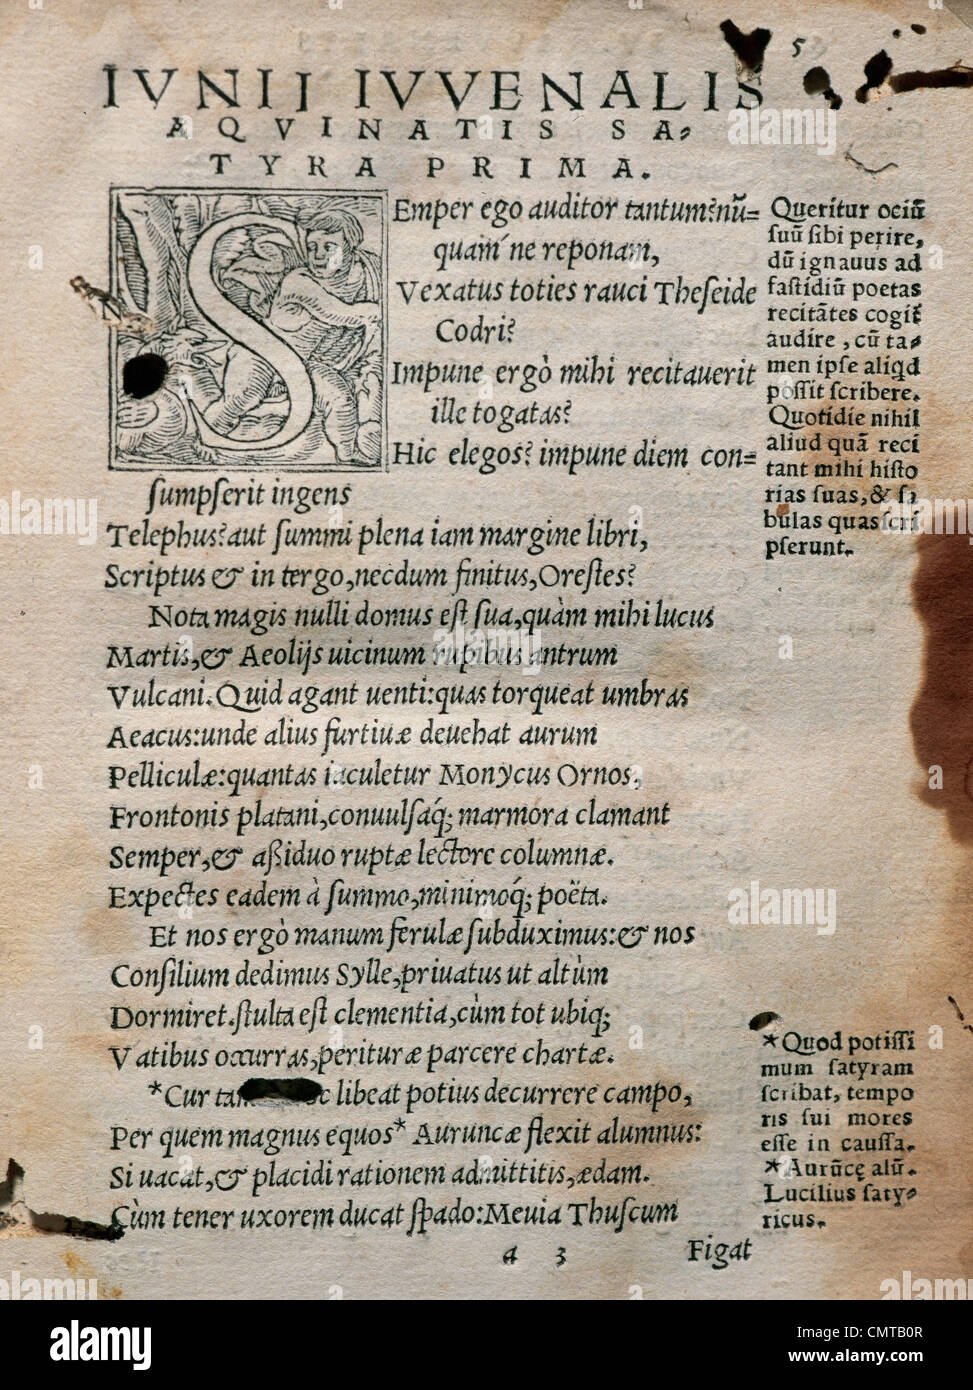 5
IVNIJ IVVENALIS
AQVINATIS SA-
TYRA PRIMA.
SEmper ego auditor tantum? nū=
quam´ne reponam,
Vexatus toties rauci Theſeide
Codri?
Impune ergò mihi recitauerit
ille togatas?
Hic elegos? impune diem con=
ſumpſerit ingens
Telephus? aut ſummi plena iam margine libri,
Scriptus & in tergo, necdum finitus, Oreſtes?
Nota magis nulli domus eſt ſua, quàm mihi lucus
Martis, & Aeolijs uicinum rupibus antrum
Vulcani. Quid agant uenti: quas torqueat umbras
Aeacus: unde alius furtiuæ deuehat aurum
Pelliculæ: quantas iaculetur Monycus Ornos,
Frontonis platani, conuulſaq́; marmora clamant
Semper, & aßiduo ruptæ lectore columnæ.
Expectes eadem à ſummo, minimoq́; poëta.
Et nos ergò manum ferulæ ſubduximus: & nos
Conſilium dedimus Sylle, priuatus ut altùm
Dormiret. ſtulta eſt clementia, cùm tot ubiq;
Vatibus occurras, perituræ parcere chartæ.
*Cur libeat potius decurrere campo,
Per quem magnus equos* Auruncæ flexit alumnus:
Si uacat, & placidi rationem admittitis, ædam.
Cùm tener uxorem ducat ſpado: Meuia Thuſcum
a 3 Figat
Queritur ociū
ſuū ſibi perire,
dū ignauus ad
faſtidiū poetas
recitātes cogit̄
audire, cū ta-
men ipſe aliqd
poſſit ſcribere.
Quotidie nihil
aliud quā reci
tant mihi hiſto
rias ſuas, & fa
bulas quas ſcri
pſerunt.
*Quod potiſſi
mum ſatyram
ſcribat, tempo
ris ſui mores
eſſe in cauſſa.
*Aurūcę alū.
Lucilius ſaty-
ricus.
alamy
Image ID: CMTB0R
www.alamy.com